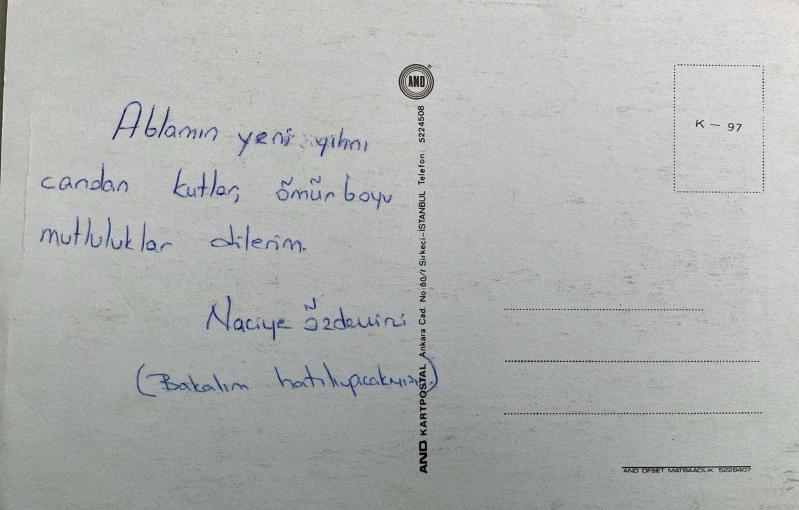 Ablamın yeni yılını
candan kutlar, ömür boyu
mutluluklar dilerim.
Naciye
(Bakalım
AND
AND KARTPOSTAL Ankara Cad. No:60/1 Sirkeci-İSTANBUL Telefon: 5224508
K - 97
AND OFSET MATBAACILIK 5228407